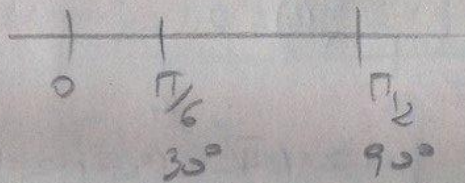 0 π/6 π/2
30° 90°